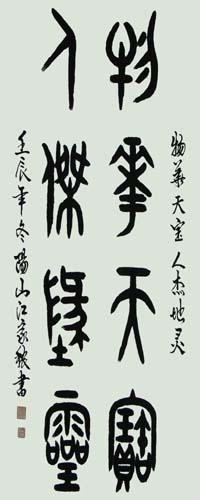 物華天宝 人杰地灵
物華天寶
人傑地靈
壬辰年冬陽山江家書